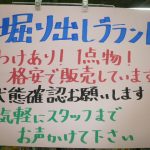 掘り出しブランド
わけあり！1点物！
格安で販売しています
状態確認お願いします
気軽にスタッフまで
お声かけて下さい